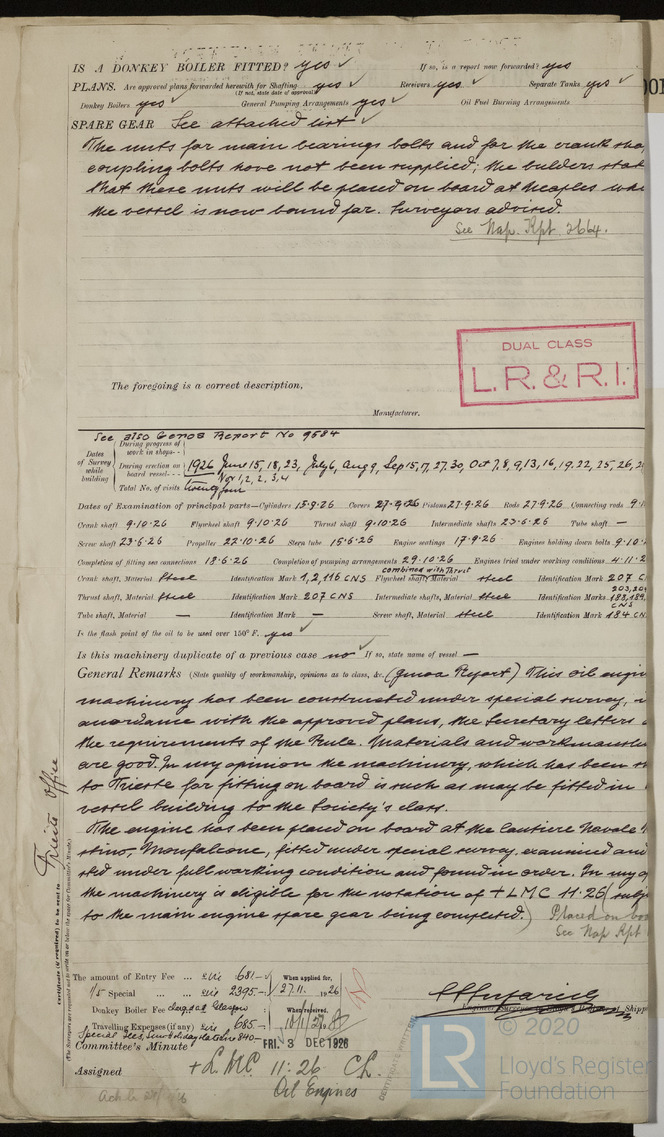 IS A DONKEY BOILER FITTED? yes ✓ If so, is a report now forwarded? yes
PLANS. Are approved plans forwarded herewith for Shafting yes ✓ Receivers yes ✓ Separate Tanks yes ✓
(If not, state date of approval)
Donkey Boilers yes ✓ General Pumping Arrangements yes ✓ Oil Fuel Burning Arrangements
SPARE GEAR See attached list ✓
The nuts for main bearings bolts and for the crank sha
coupling bolts have not been supplied; the builders stat
that these nuts will be placed on board at Neaples whe
the vessel is now bound for. Surveyors advised.
See Nap. Rpt. 2664.
DUAL CLASS
L.R. & R.I.
The foregoing is a correct description,
Manufacturer.
See also Genoa Report No 9584
Dates of Survey while building
During progress of work in shops - -
During erection on board vessel - - - 1926 June 15, 18, 23, July 6, Aug 9, Sep 15, 17, 27, 30, Oct 7, 8, 9, 13, 16, 19, 22, 25, 26, 2
Nov 1, 2, 2, 3, 4
Total No. of visits twenty four
Dates of Examination of principal parts—Cylinders 15.9.26 Covers 27.9.26 Pistons 27.9.26 Rods 27.9.26 Connecting rods 9.1
Crank shaft 9.10.26 Flywheel shaft 9.10.26 Thrust shaft 9.10.26 Intermediate shafts 23.6.26 Tube shaft —
Screw shaft 23.6.26 Propeller 22.10.26 Stern tube 15.6.26 Engine seatings 17.9.26 Engines holding down bolts 9.10.
Completion of fitting sea connections 18.6.26 Completion of pumping arrangements 29.10.26 Engines tried under working conditions 4.11.2
combined with Thrust
Crank shaft, Material steel Identification Mark 1,2,116 CNS Flywheel shaft, Material steel Identification Mark 207 C
203,204
Thrust shaft, Material steel Identification Mark 207 CNS Intermediate shafts, Material steel Identification Marks 188,189,
CNS
Tube shaft, Material — Identification Mark — Screw shaft, Material steel Identification Mark 184 CN
Is the flash point of the oil to be used over 150° F. yes ✓
Is this machinery duplicate of a previous case no ✓ If so, state name of vessel —
General Remarks (State quality of workmanship, opinions as to class, &c. (Genoa Report) This oil engin
machinery has been constructed under special survey, i
accordance with the approved plans, the Secretary letters
the requirements of the Rule. Materials and workmanshi
are good. In my opinion the machinery, which has been s
to Trieste for fitting on board is such as may be fitted in
vessel building to the Society's class.
The engine has been placed on board at the Cantiere Navale T
stino, Monfalcone, fitted under special survey, examined and
sted under full working condition and found in order. In my o
the machinery is eligible for the notation of + LMC 11.26 (subje
to the main engine spare gear being completed.) Placed on boa
See Nap Rpt
Trieste Office
Certificate (if required) to be sent to
(The Surveyors are requested not to write on or below the space for Committee's Minute.)
The amount of Entry Fee ... Lire 681.— When applied for,
4/5 Special ... ... Lire 2395.— 27.11. 1926
Donkey Boiler Fee charged at Glasgow When received,
Travelling Expenses (if any) Lire 685.— 10/1/27
Special Fees, 840—
Committee's Minute FRI. 3 DEC 1926
Assigned + L.M.C. 11.26 C.L.
Oil Engines
CERTIFICATE WRITTEN
© 2020
LR
Lloyd's Register
Foundation